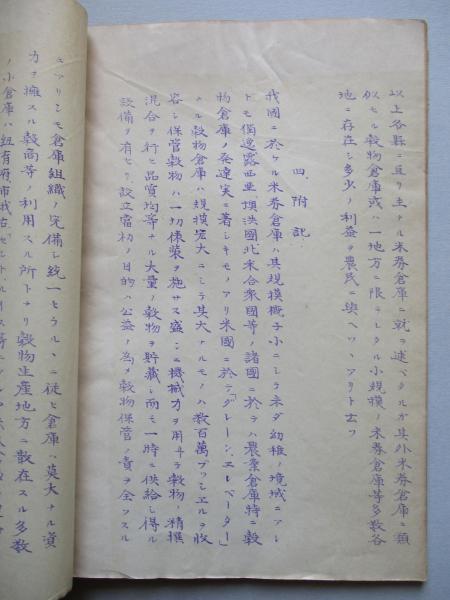 以上各縣ニ亘リ主ナル米券倉庫ニ就テ述ベタルガ其外米券倉庫ニ類
似セル穀物倉庫或ハ一地方ニ限ラレタル小規模ノ米券倉庫等多数各
地ニ存在シ多少ノ利益ヲ農民ニ與ヘツヽアリト云フ
四、附記
我國ニ於ケル米券倉庫ハ其規模概子小ニシテ未ダ幼稚ノ境域ニアレ
トモ獨逸露西亜墺洪國北米合衆國等ノ諸國ニ於テハ農業倉庫特ニ穀
物倉庫ノ発達実ニ著シキモノアリ米國ニ於テ「グレーン、エレベーター」
ナル穀物倉庫ハ規模宏大ニシテ其大ナルモノハ数百萬ブッシエルヲ收
容シ保管穀物ハ一切俵装ヲ施サス盛ンニ機械力ヲ用ヰテ穀物ノ精撰
混合ヲ行ヒ品質均等ナル大量ノ穀物ヲ貯蔵シ而モ一時ニ供給シ得ル
設備ヲ有セリ設立當初ノ目的ハ公益ノ為メ穀物保管ノ責ヲ全フスル
ニアリシモ倉庫組織ノ完備シ統一セラルヽニ從ヒ倉庫ハ莫大ナル資
力ヲ擁スル穀商等ノ利用スル所トナリ穀物生産地方ニ散在スル多数
ノ小倉庫ハ紐育府市俄古セントルイス等